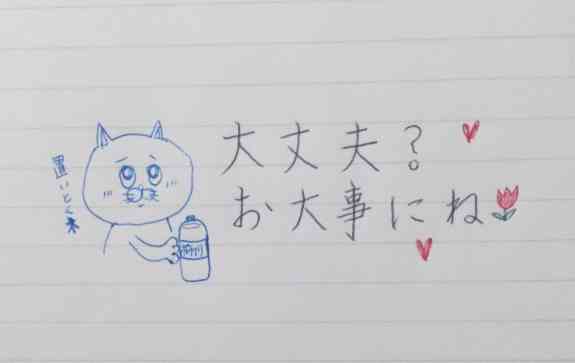 大丈夫?
お大事にね
置いとく